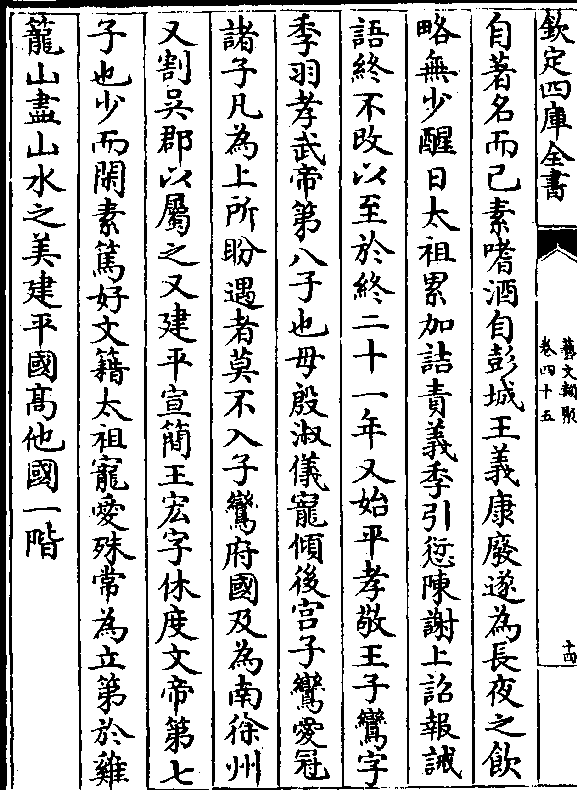 欽定四庫全書
藝文類聚
卷四十五
十四
自著名而已素嗜酒自彭城王義康廢遂為長夜之飲
略無少醒日太祖累加詰責義季引愆陳謝上詔報誡
語終不改以至於終二十一年又始平孝敬王子鸞字
季羽孝武帝第八子也母殷淑儀寵傾後宫子鸞愛冠
諸子凡為上所盼遇者莫不入子鸞府國及為南徐州
又割吳郡以屬之又建平宣簡王宏字休度文帝第七
子也少而閑素篤好文籍太祖寵愛殊常為立第於雞
籠山盡山水之美建平國髙他國一階